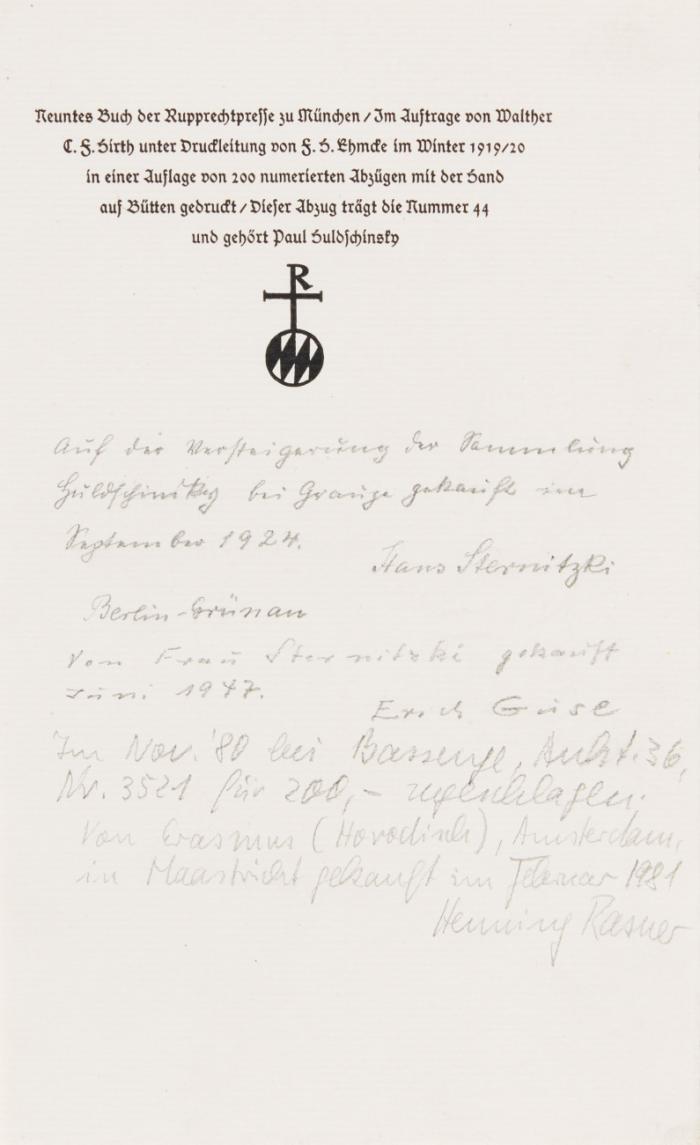 Neuntes Buch der Rupprechtpresse zu München / Im Auftrage von Walther
C. F. Hirth unter Druckleitung von F. H. Ehmcke im Winter 1919/20
in einer Auflage von 200 numerierten Abzügen mit der Hand
auf Bütten gedruckt / Dieser Abzug trägt die Nummer 44
und gehört Paul Huldschinsky
R
Auf der Versteigerung der Sammlung
Huldschinsky bei Graupe gekauft im
September 1924.
Hans Sternitzki
Berlin-Grünau
Von Frau Sternitzki gekauft
Juni 1947.
Erich Guse
Im Nov. '80 bei Bassenge, Aukt. 36,
Nr. 3521 für 200,- zugeschlagen.
Von Erasmus (Horodisch), Amsterdam,
in Maastricht gekauft im Februar 1981
Henning Rasner